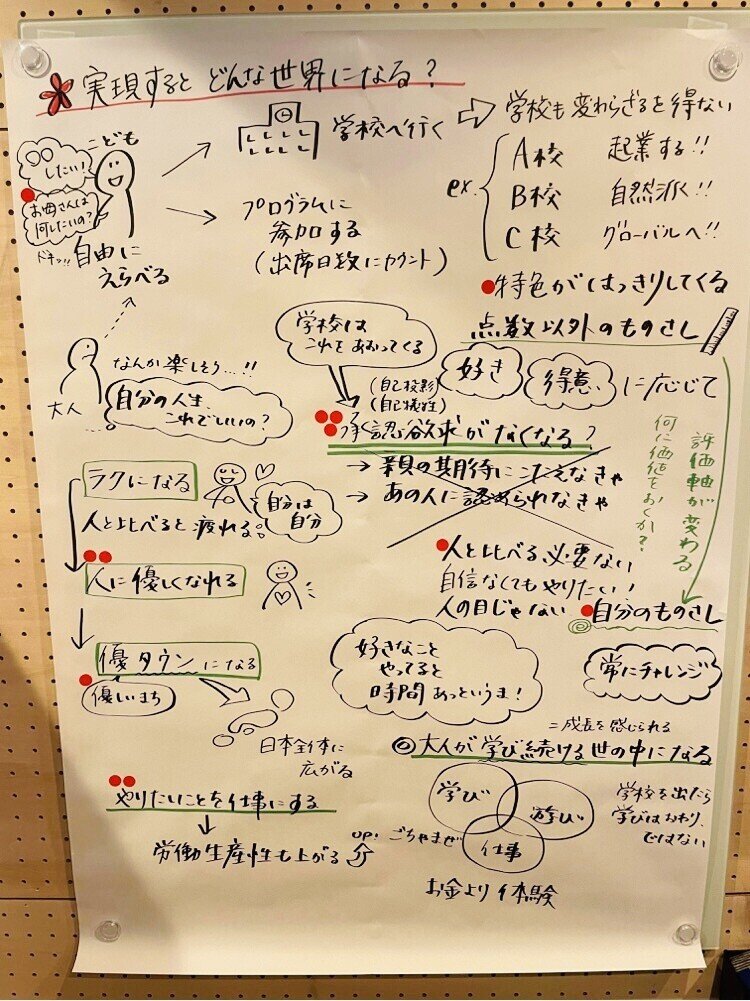 実現すると どんな世界になる?
こども
○○
したい!
お母さんは
何したいの?
ドキッ!!
自由に
えらべる
学校へ行く
学校も変わらざるを得ない
ex.
A校 起業する!!
B校 自然派く!!
C校 グローバルへ!!
特色がはっきりしてくる
プログラムに
参加する
(出席日数にカウント)
点数以外のものさし
好き
得意
に応じて
評価軸が変わる
何に価値をおくか?
大人
なんか楽しそう…!!
自分の人生、
これでいいの?
学校は
これをあおってくる
(自己投影)
(自己犠牲)
承認欲求がなくなる?
→ 親の期待にこたえなきゃ
→ あの人に認められなきゃ
人と比べる必要ない
自信なくてもやりたい!
人の目じゃない
◎自分のものさし
ラクになる
自分は
自分
人と比べると疲れる。
人に優しくなれる
優タウンになる
優しいまち
日本全体に
広がる
やりたいことを仕事にする
労働生産性も上がる
UP!
好きなこと
やってると
時間あっというま!
常にチャレンジ
=成長を感じられる
◎大人が学び続ける世の中になる
学び
遊び
仕事
ごちゃまぜ
お金より体験
学校を出たら
学びはおわり、
ではない